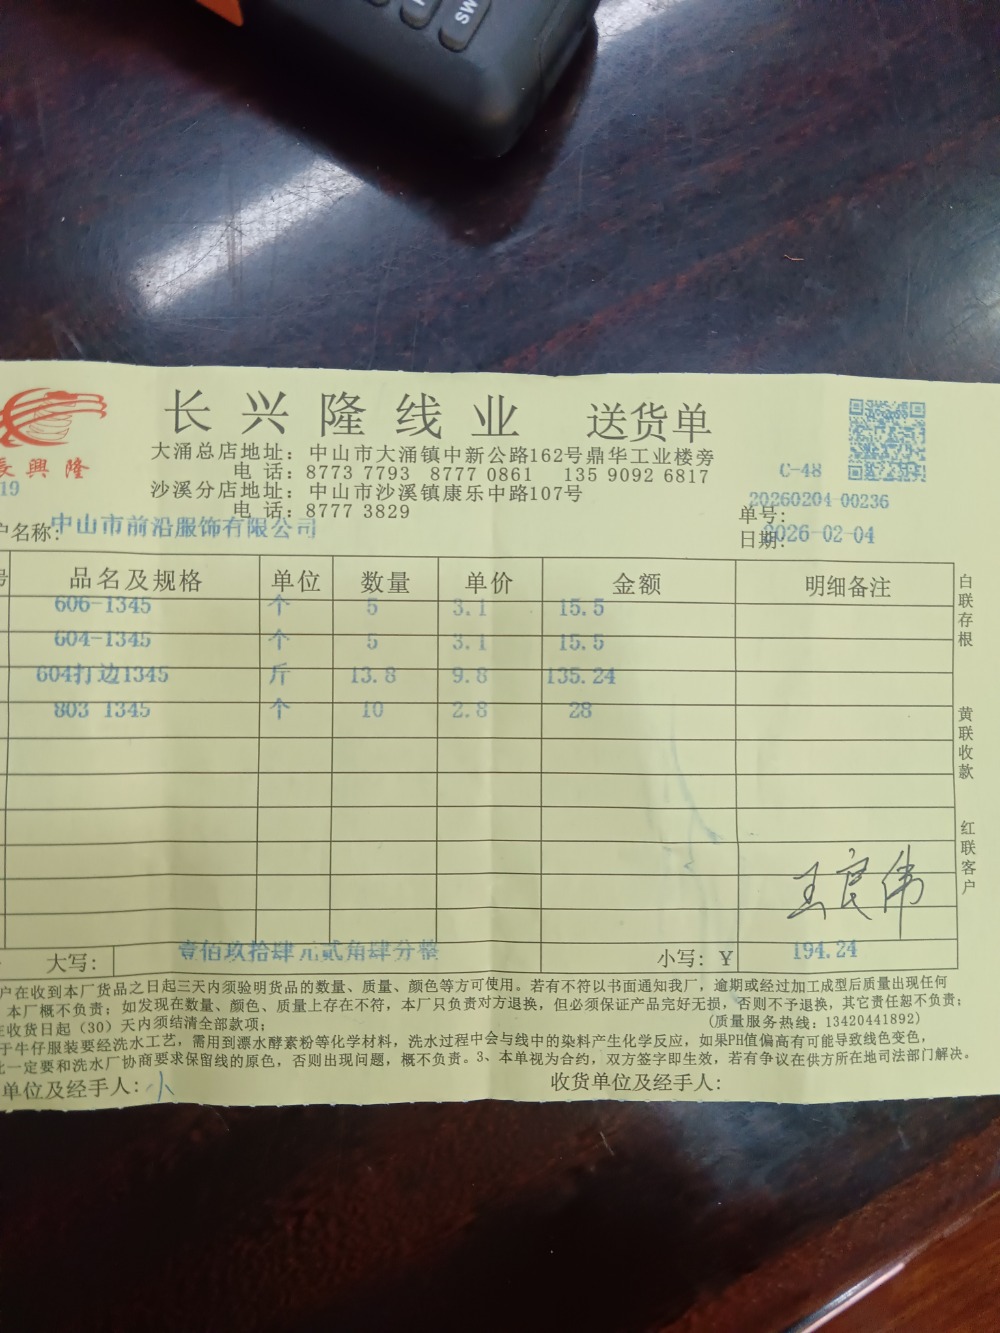 SW
长兴隆线业 送货单
興隆
大涌总店地址：中山市大涌镇中新公路162号鼎华工业楼旁
电 话：8773 7793 8777 0861 135 9092 6817
沙溪分店地址：中山市沙溪镇康乐中路107号
电 话：8777 3829
19
C-48
单号：20260204-00236
日期：2026-02-04
户名称：中山市前沿服饰有限公司
号 品名及规格 单位 数量 单价 金额 明细备注
606-1345 个 5 3.1 15.5
604-1345 个 5 3.1 15.5
604打边1345 斤 13.8 9.8 135.24
803 1345 个 10 2.8 28
白联存根
黄联收款
红联客户
王良伟
大写： 壹佰玖拾肆元贰角肆分整 小写：Y 194.24
户在收到本厂货品之日起三天内须验明货品的数量、质量、颜色等方可使用。若有不符以书面通知我厂，逾期或经过加工成型后质量出现任何
本厂概不负责；如发现在数量、颜色、质量上存在不符，本厂只负责对方退换，但必须保证产品完好无损，否则不予退换，其它责任恕不负责；
在收货日起（30）天内须结清全部款项； (质量服务热线：13420441892)
于牛仔服装要经洗水工艺，需用到漂水酵素粉等化学材料，洗水过程中会与线中的染料产生化学反应，如果PH值偏高有可能导致线色变色，
此一定要和洗水厂协商要求保留线的原色，否则出现问题，概不负责。3、本单视为合约，双方签字即生效，若有争议在供方所在地司法部门解决。
单位及经手人：小 收货单位及经手人：